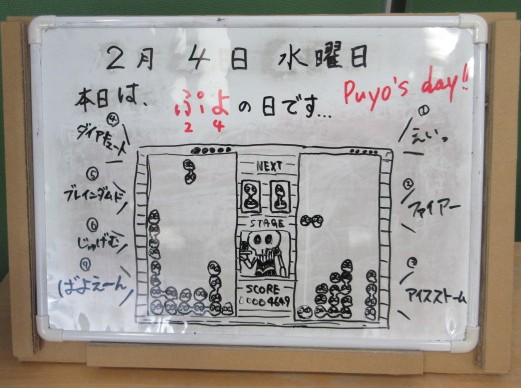 2月 4日 水曜日
本日は、ぷよの日です…
2 4
Puyo's day!!
④
ダイアキュート
⑤
ブレインダムド
⑥
じゅげむ
⑦
ばよえーん
NEXT
STAGE
SCORE
00004649
①
えいっ
②
ファイアー
③
アイスストーム